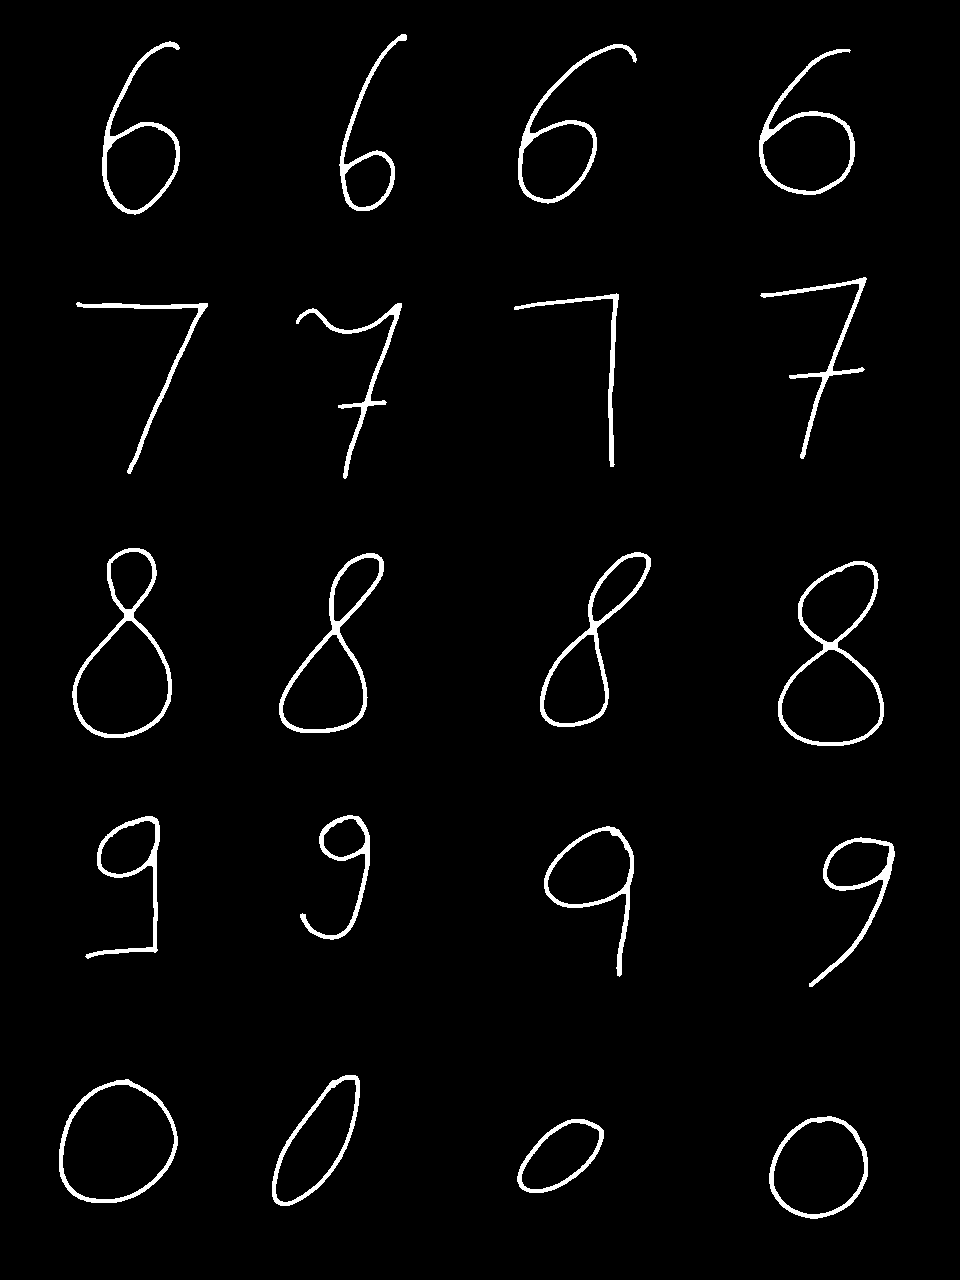 6 6 6 6
7 7 7 7
8 8 8 8
9 9 9 9
0 0 0 0